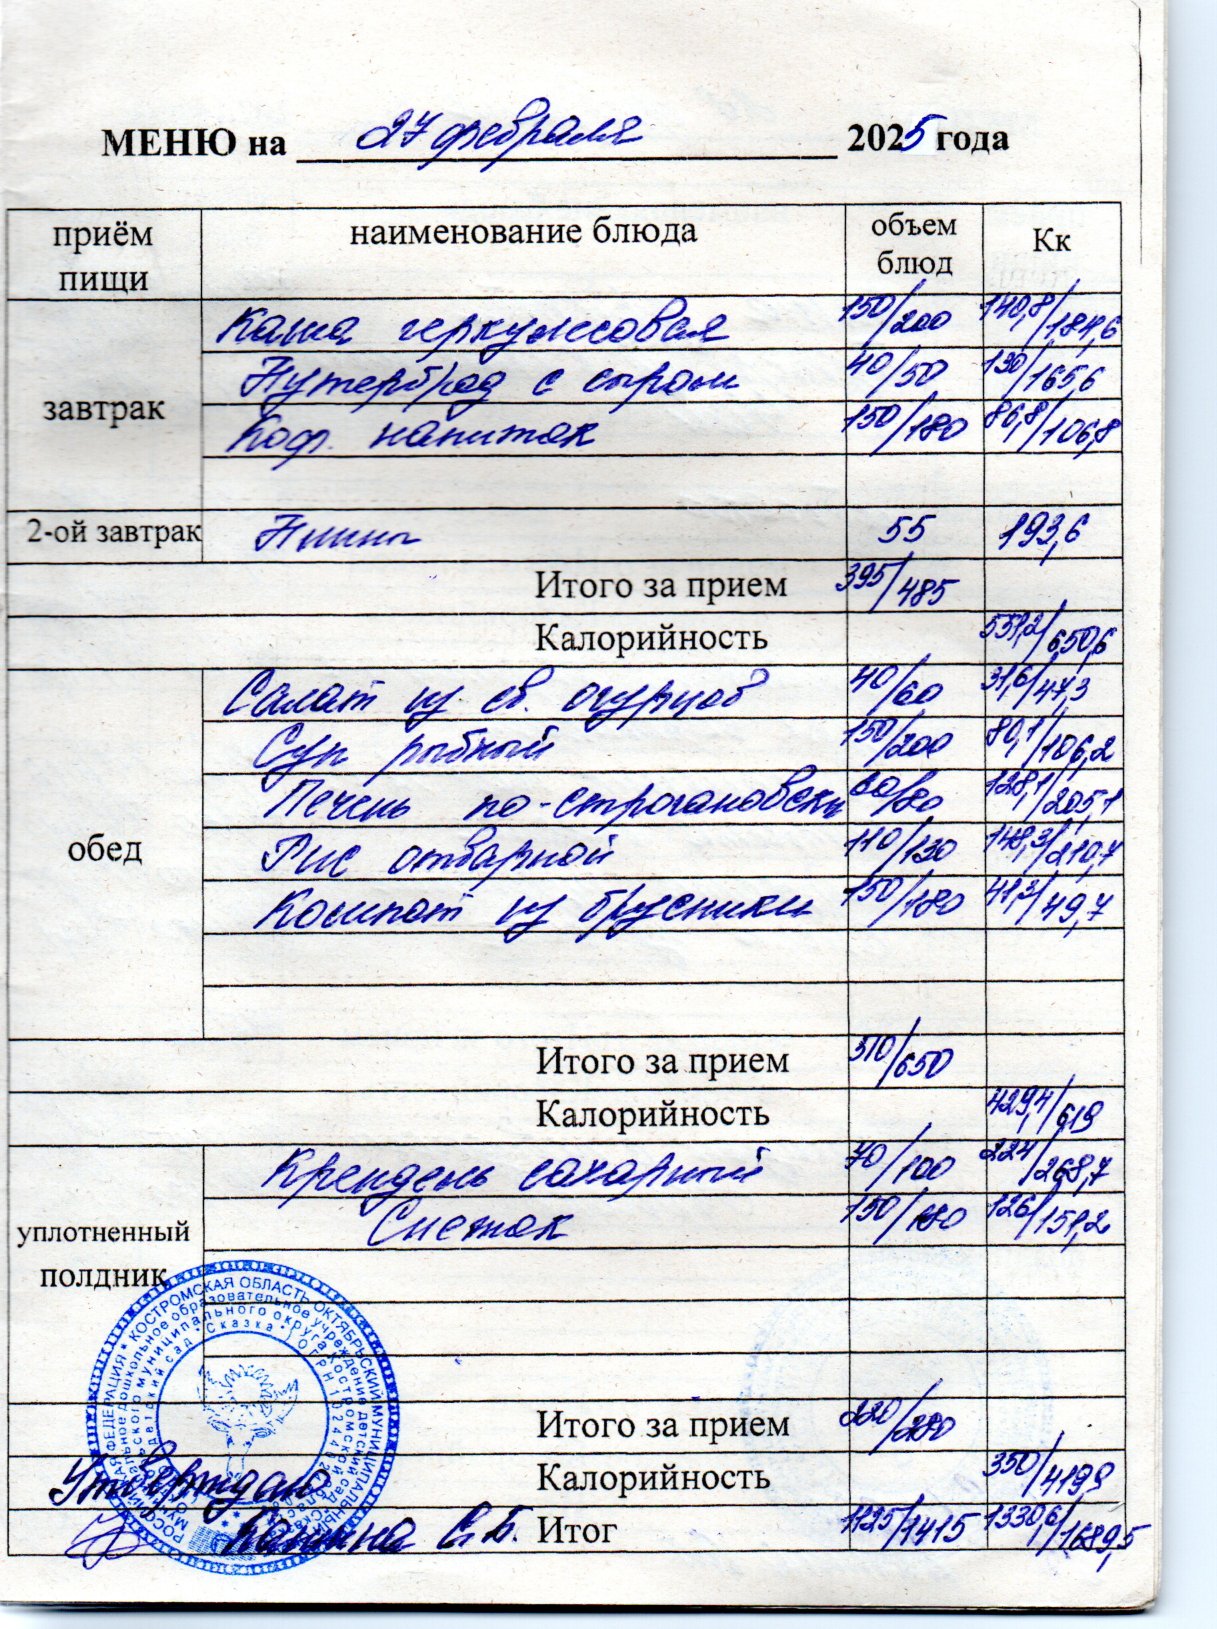 МЕНЮ на 27 февраля 2025 года
приём пищи наименование блюда объем блюд Кк
завтрак
Каша геркулесовая 150/200 140,8/184,6
Бутерброд с сыром 40/50 130/165,6
Коф. напиток 150/180 86,8/106,8
2-ой завтрак 55 193,6
Итого за прием 395/485
Калорийность 551,2/650,6
обед
Салат из св. огурцов 40/60 31,6/47,3
Суп рыбный 150/200 80,1/106,2
Печень по-строгановски 60/80 128,1/205,1
Рис отварной 110/130 148,3/210,7
Компот из брусники 150/180 41,3/49,7
Итого за прием 510/650
Калорийность 429,4/619
уплотненный
полдник
Крендель сахарный 70/100 224/268,7
Снежок 150/180 126/151,2
Итого за прием 220/280
Калорийность 350/419,9
Утверждаю
Итог 1125/1415 1330,6/1689,5
РОССИЙСКАЯ ФЕДЕРАЦИЯ * КОСТРОМСКАЯ ОБЛАСТЬ ОКТЯБРЬСКИЙ МУНИЦИПАЛЬНЫЙ
дошкольное образовательное учреждение детский сад
муниципального округа Костромской
детский сад "Сказка"